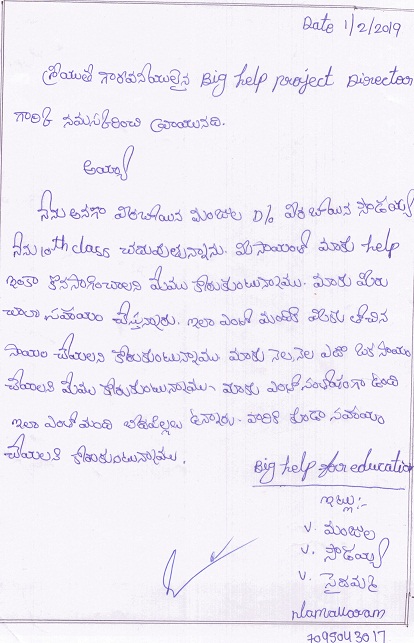 Date 1/2/2019
శ్రీయుత గౌరవనీయులైన Big help project Director
గారికి నమస్కరించి వ్రాయునది.
అయ్యా
నేను అనగా విరబోయిన మంజుల D/o విరబోయిన సాడయ్య
నేను 10th class చదువుతున్నాను. మీ సాయంతో మాకు help
ఇంకా కొనసాగించాలని మేము కోరుకుంటున్నాము. మాకు మీరు
చాలా సహాయం చేస్తున్నారు. ఇలా ఎంతో మందికి మీకు తోచిన
సాయం చేయాలని కోరుకుంటున్నాము మాకు నెల, నెల ఎదో ఒక సాయం
చేయాలని మేము కోరుకుంటున్నాము. మాకు ఎంతో సంతోషంగా ఉంది
ఇలా ఎంతో మంది ఉన్నారు. వారికి కూడా సహాయం
చేయాలని కోరుకుంటున్నాము.
Big help for education
ఇట్లు:-
V. మంజుల
V. సాడయ్య
V. సైదమ్మ
7095043017